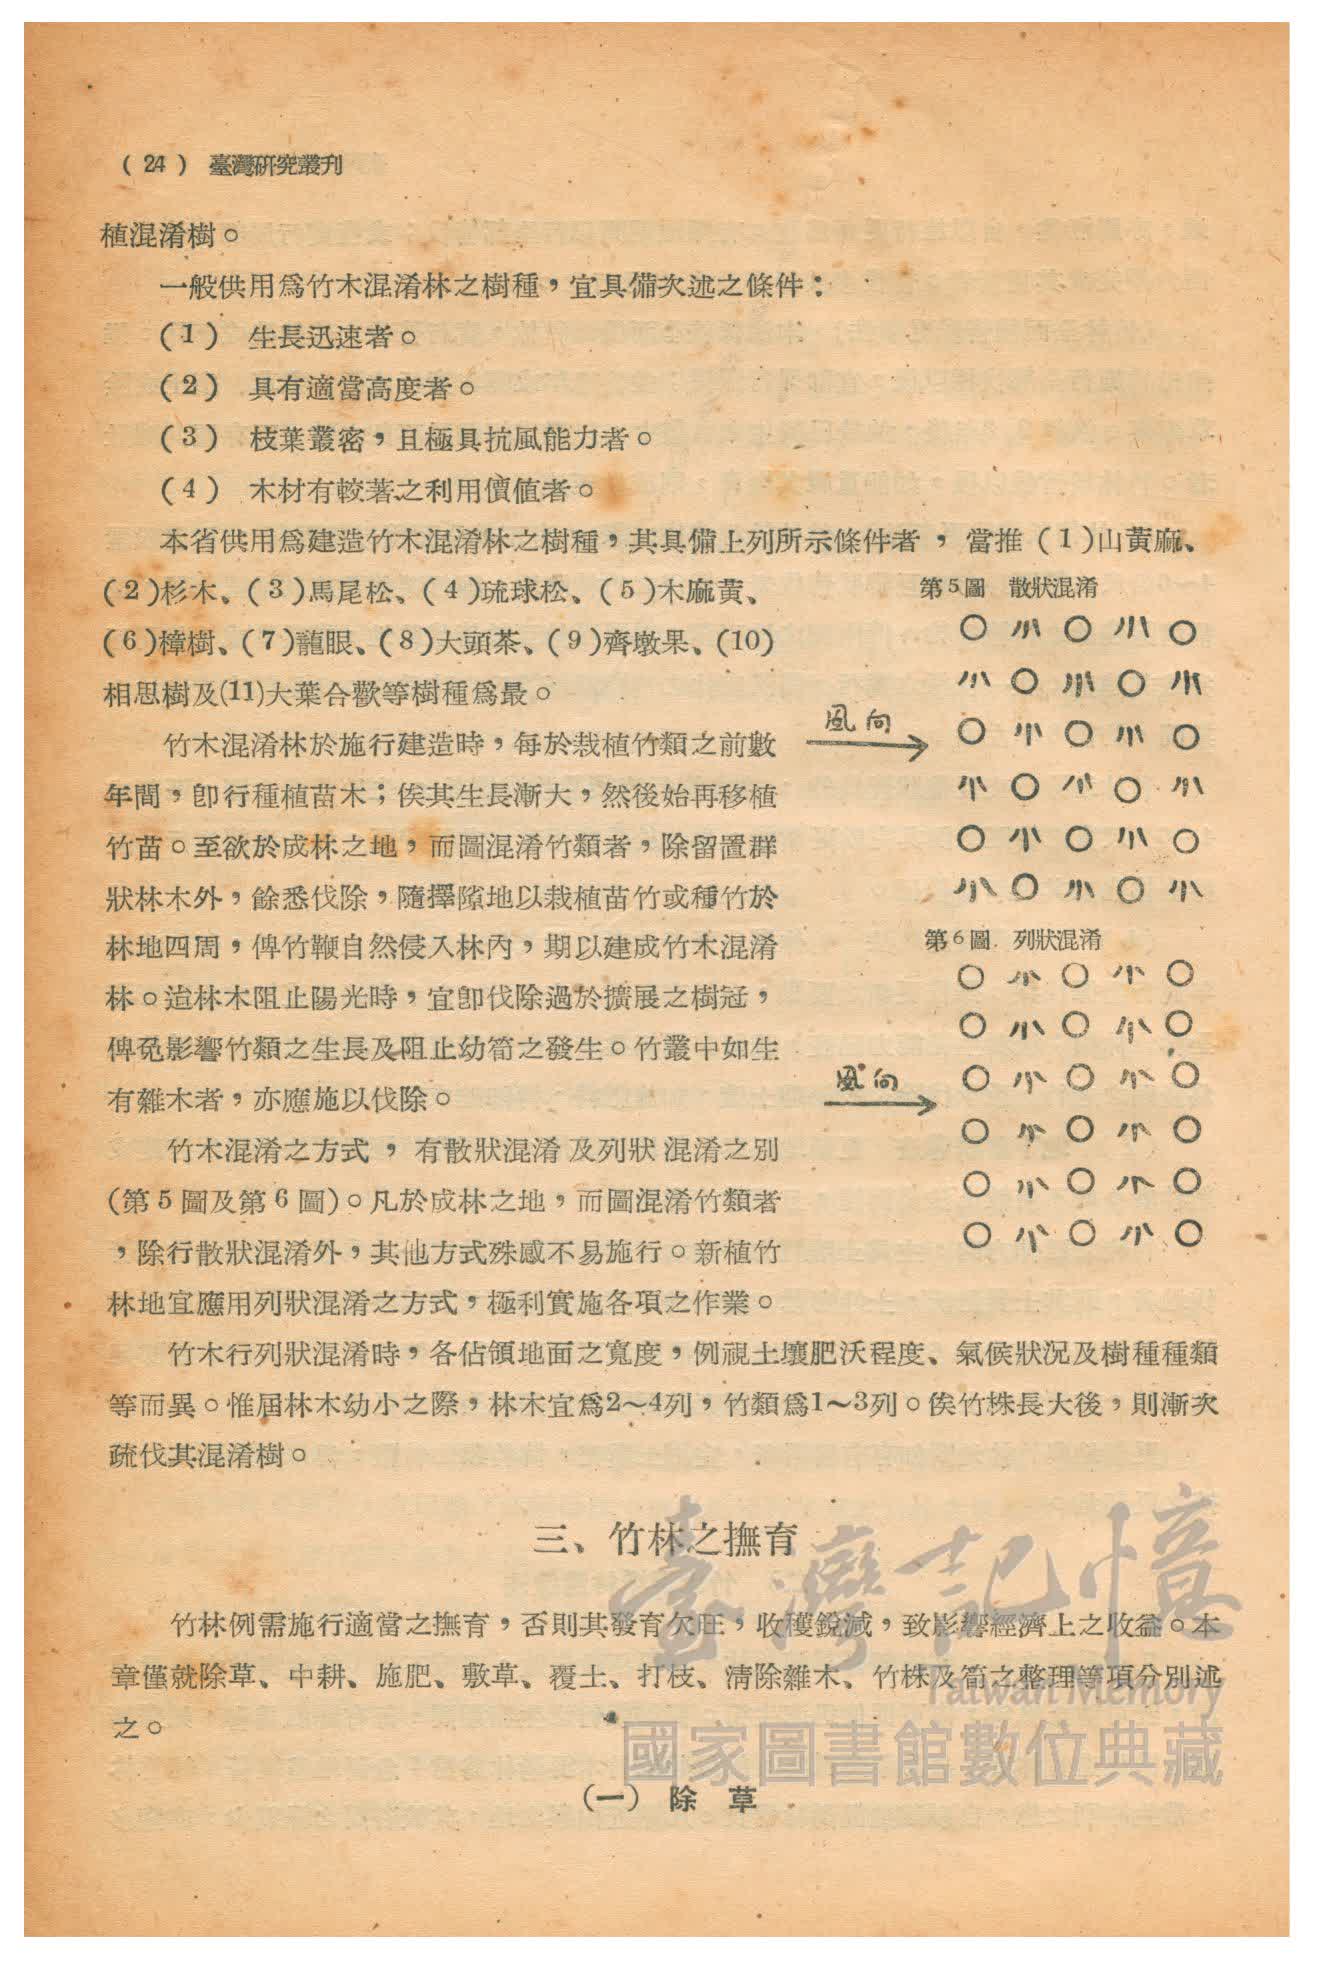 ( 24 ) 臺灣研究叢刋
植混淆樹。
一般供用爲竹木混淆林之樹種，宜具備次述之條件：
(1) 生長迅速者。
(2) 具有適當高度者。
(3) 枝葉叢密，且極具抗風能力者。
(4) 木材有較著之利用價値者。
本省供用爲建造竹木混淆林之樹種，其具備上列所示條件者，當推(1)山黃麻、
(2)杉木、(3)馬尾松、(4)琉球松、(5)木麻黃、
(6)樟樹、(7)龍眼、(8)大頭茶、(9)齊墩果、(10)
相思樹及(11)大葉合歡等樹種爲最。
竹木混淆林於施行建造時，每於栽植竹類之前數
年間，卽行種植苗木；俟其生長漸大，然後始再移植
竹苗。至欲於成林之地，而圖混淆竹類者，除留置群
狀林木外，餘悉伐除，隨擇隙地以栽植苗竹或種竹於
林地四周，俾竹鞭自然侵入林內，期以建成竹木混淆
林。迨林木阻止陽光時，宜卽伐除過於擴展之樹冠，
俾免影響竹類之生長及阻止幼筍之發生。竹叢中如生
有雜木者，亦應施以伐除。
竹木混淆之方式，有散狀混淆及列狀混淆之別
(第5圖及第6圖)。凡於成林之地，而圖混淆竹類者
，除行散狀混淆外，其他方式殊感不易施行。新植竹
林地宜應用列狀混淆之方式，極利實施各項之作業。
第5圖 散狀混淆
風向
第6圖 列狀混淆
風向
竹木行列狀混淆時，各佔領地面之寬度，例視土壤肥沃程度、氣候狀況及樹種種類
等而異。惟屆林木幼小之際，林木宜爲2～4列，竹類爲1～3列。俟竹株長大後，則漸次
疏伐其混淆樹。
三、竹林之撫育
竹林例需施行適當之撫育，否則其發育欠旺，收穫銳減，致影響經濟上之收益。本
章僅就除草、中耕、施肥、敷草、覆土、打枝、淸除雜木、竹株及筍之整理等項分別述
之。
(一) 除 草
臺灣記憶
Taiwan Memory
國家圖書館數位典藏